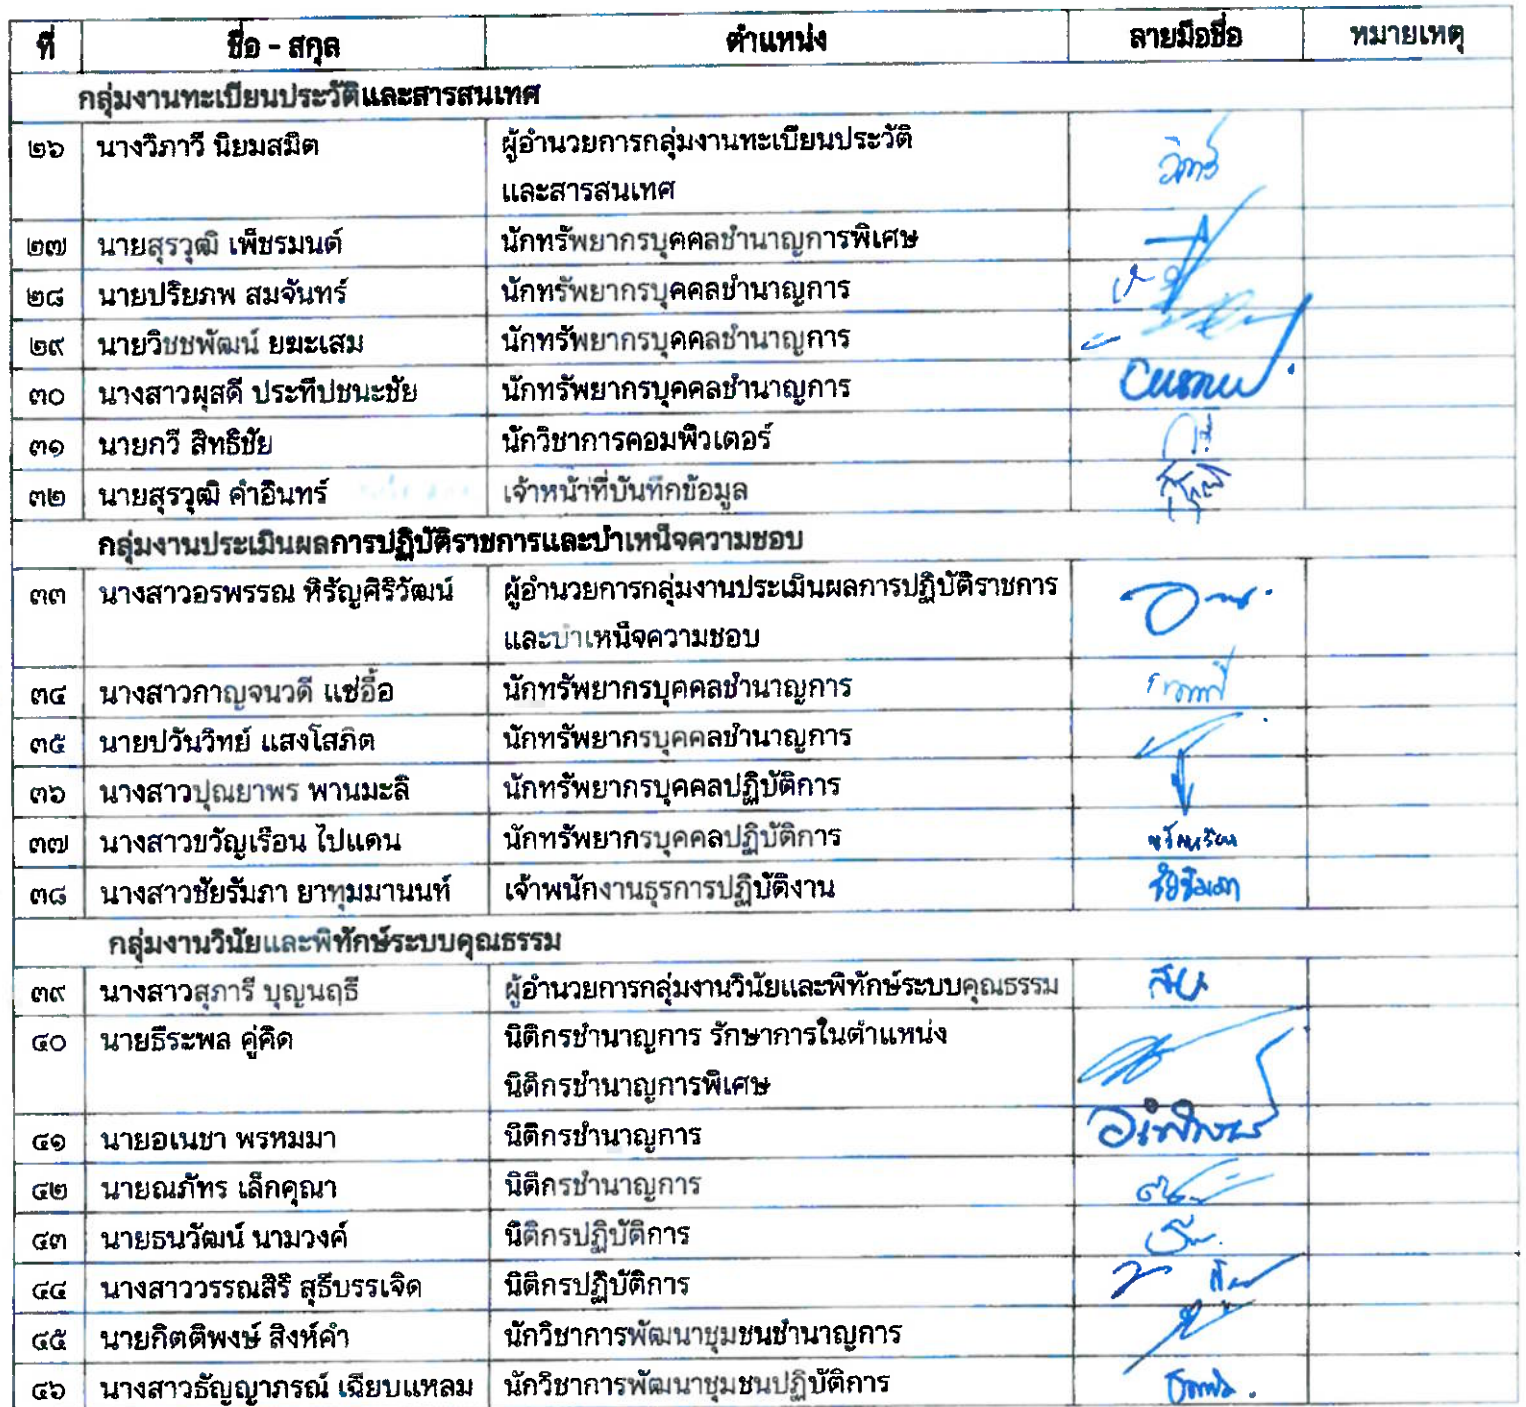 ที่ ชื่อ - สกุล ตำแหน่ง ลายมือชื่อ หมายเหตุ
กลุ่มงานทะเบียนประวัติและสารสนเทศ
๒๖ นางวิภาวี นิยมสมิต ผู้อำนวยการกลุ่มงานทะเบียนประวัติ
และสารสนเทศ
๒๗ นายสุรวุฒิ เพ็ชรมนต์ นักทรัพยากรบุคคลชำนาญการพิเศษ
๒๘ นายปริยภพ สมจันทร์ นักทรัพยากรบุคคลชำนาญการ
๒๙ นายวิชชพัฒน์ ยมะเสม นักทรัพยากรบุคคลชำนาญการ
๓๐ นางสาวผุสดี ประทีปชนะชัย นักทรัพยากรบุคคลชำนาญการ
๓๑ นายกวี สิทธิชัย นักวิชาการคอมพิวเตอร์
๓๒ นายสุรวุฒิ คำอินทร์ เจ้าหน้าที่บันทึกข้อมูล
กลุ่มงานประเมินผลการปฏิบัติราชการและบำเหน็จความชอบ
๓๓ นางสาวอรพรรณ หิรัญศิริวัฒน์ ผู้อำนวยการกลุ่มงานประเมินผลการปฏิบัติราชการ
และบำเหน็จความชอบ
๓๔ นางสาวกาญจนวดี แซ่อื้อ นักทรัพยากรบุคคลชำนาญการ
๓๕ นายปวันวิทย์ แสงโสภิต นักทรัพยากรบุคคลชำนาญการ
๓๖ นางสาวปุณยาพร พานมะลิ นักทรัพยากรบุคคลปฏิบัติการ
๓๗ นางสาวขวัญเรือน ไปแดน นักทรัพยากรบุคคลปฏิบัติการ
๓๘ นางสาวชัยรัมภา ยาทุมมานนท์ เจ้าพนักงานธุรการปฏิบัติงาน
กลุ่มงานวินัยและพิทักษ์ระบบคุณธรรม
๓๙ นางสาวสุภารี บุญนฤธี ผู้อำนวยการกลุ่มงานวินัยและพิทักษ์ระบบคุณธรรม
๔๐ นายธีระพล คู่คิด นิติกรชำนาญการ รักษาการในตำแหน่ง
นิติกรชำนาญการพิเศษ
๔๑ นายอเนชา พรหมมา นิติกรชำนาญการ
๔๒ นายณภัทร เล็กคุณา นิติกรชำนาญการ
๔๓ นายธนวัฒน์ นามวงค์ นิติกรปฏิบัติการ
๔๔ นางสาววรรณสิริ สุธีบรรเจิด นิติกรปฏิบัติการ
๔๕ นายกิตติพงษ์ สิงห์คำ นักวิชาการพัฒนาชุมชนชำนาญการ
๔๖ นางสาวธัญญาภรณ์ เฉียบแหลม นักวิชาการพัฒนาชุมชนปฏิบัติการ